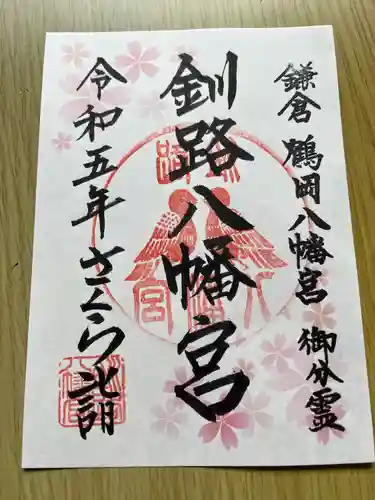 鎌倉 鶴岡八幡宮 御分霊
釧路八幡宮
令和五年さくら詣